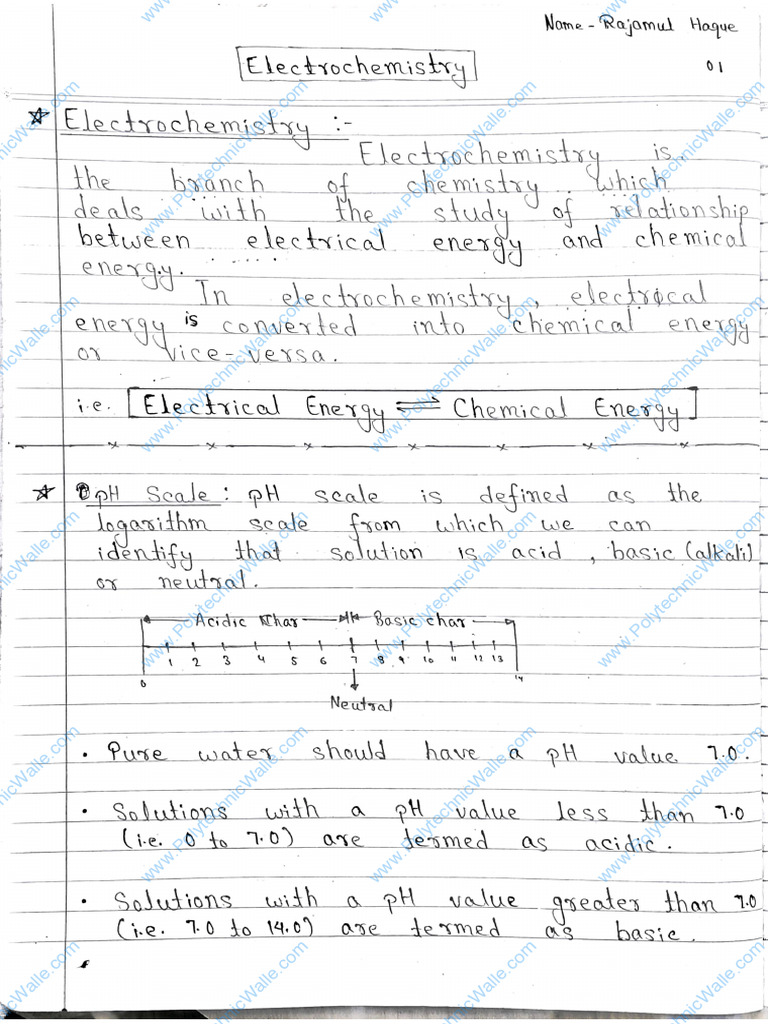 Name - Rajamul Haque
Electrochemistry
01
Electrochemistry :-
Electrochemistry is
the branch of chemistry which
deals with the study of relationship
between electrical energy and chemical
energy.
In electrochemistry, electrical
energy is converted into chemical energy
or vice-versa.
i.e. Electrical Energy ⇌ Chemical Energy
pH Scale : pH scale is defined as the
logarithm scale from which we can
identify that solution is acid, basic (alkali)
or neutral.
Acidic Char Basic char
1 2 3 4 5 6 7 8 9 10 11 12 13
0 14
Neutral
• Pure water should have a pH value 7.0.
• Solutions with a pH value less than 7.0
(i.e. 0 to 7.0) are termed as acidic.
• Solutions with a pH value greater than 7.0
(i.e. 7.0 to 14.0) are termed as basic.
www.PolytechnicWalle.com